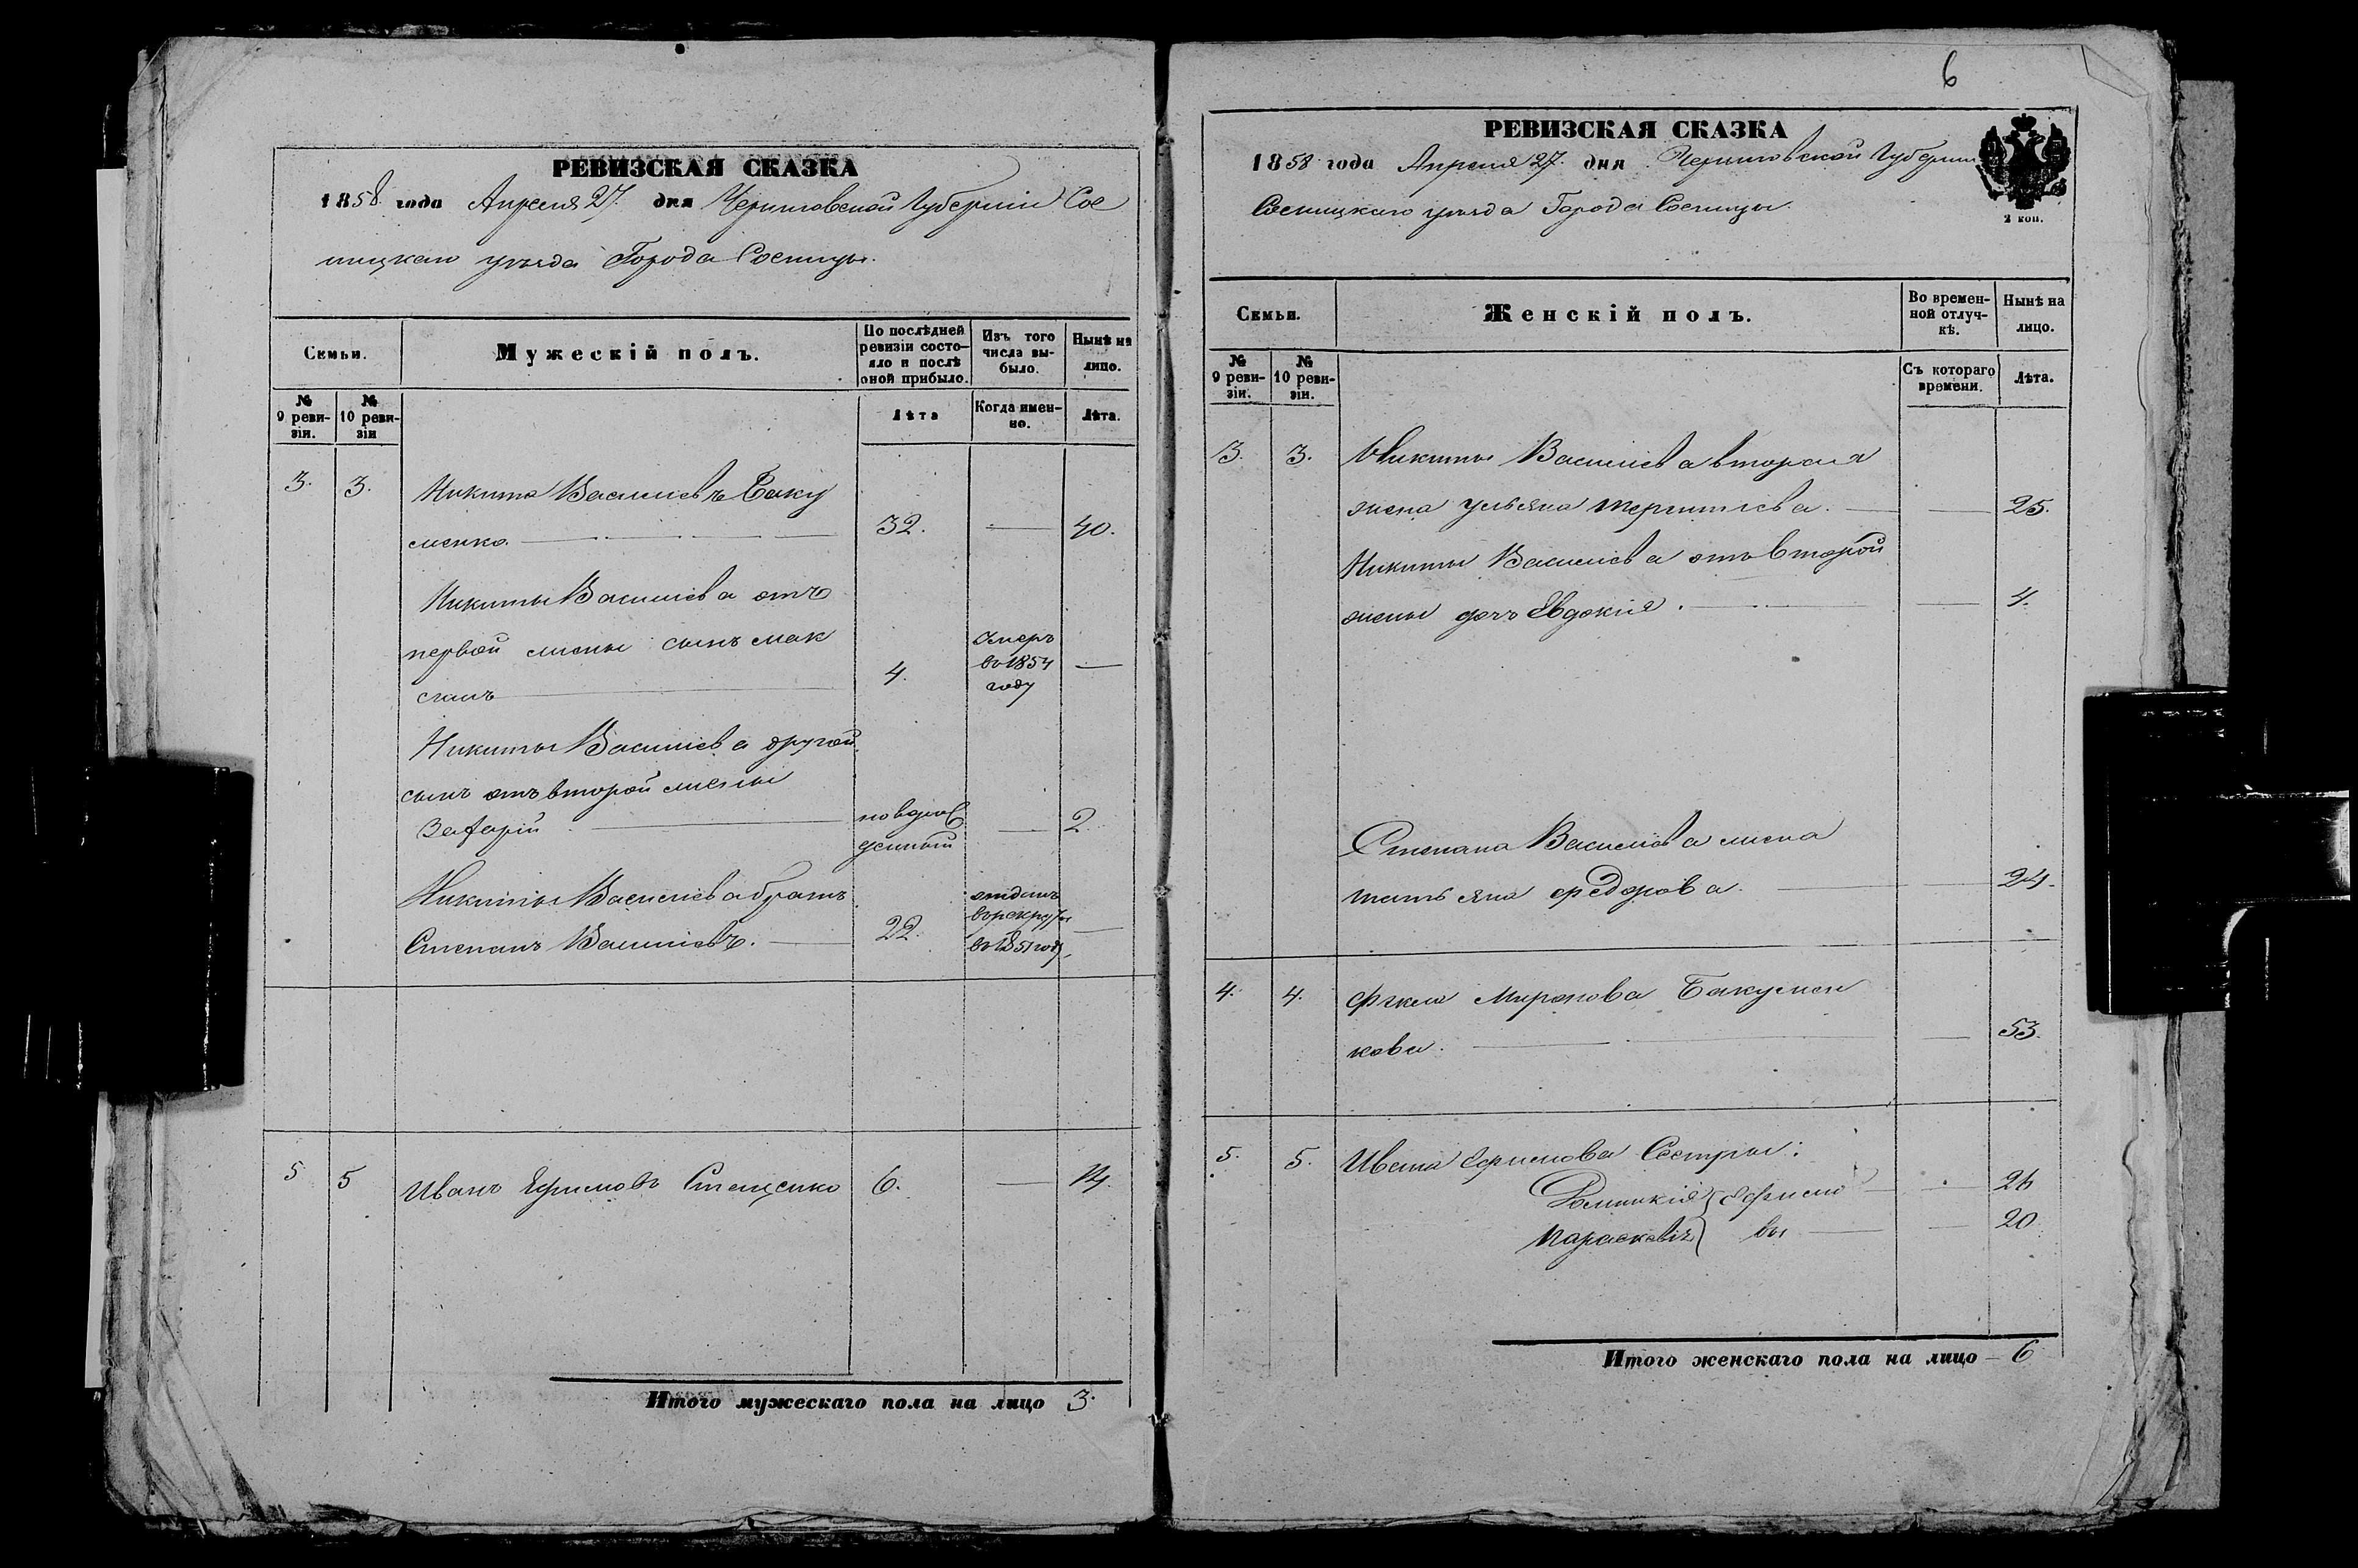 РЕВИЗСКАЯ СКАЗКА
1858 года Апреля 27. дня Черниговской Губернiи Сос
ницкаго уѣзда Города Сосницы.
Семьи.
Мужескiй полъ.
По послѣдней ревизiи состояло и послѣ оной прибыло.
Изъ того числа выбыло.
Нынѣ на лицо.
№ 9 ревизiи.
№ 10 ревизiи
Лѣта
Когда именно.
Лѣта.
3. 3. Никита Васильевъ Баку
менко. 32. — 40.
Никиты Васильева отъ
первой жены сынъ мак
симъ 4. умеръ въ 1854 году —
Никиты Васильева другой
сынъ отъ второй жены
Захарiй новорожденный — 2
Никиты Васильева братъ
Степанъ Васильевъ. 22. отданъ въ рекруты въ 1851 году —
5 5 Иванъ Ефимовъ Стещенко 6. — 14.
Итого мужескаго пола на лицо 3.
6
РЕВИЗСКАЯ СКАЗКА
1858 года Апреля 27. дня Черниговской Губернiи
Сосницкаго уѣзда Города Сосницы.
2 коп.
Семьи.
Женскiй полъ.
Во временной отлучкѣ.
Нынѣ на лицо.
№ 9 ревизiи.
№ 10 ревизiи.
Съ котораго времени.
Лѣта.
3. 3. Никиты Васильева вторая
жена ульяна терентiева. — 25.
Никиты Васильева отъ второй
жены дочь Евдокiя. — 4.
Степана Васильева жена
татьяна федорова. — 24.
4. 4. Фекла Миронова Бакумен
кова. — 53.
5. 5. Ивана Ефимова Сестры:
Домникiя } Ефимо — 26
Параскевiя } вы — 20
Итого женскаго пола на лицо — 6